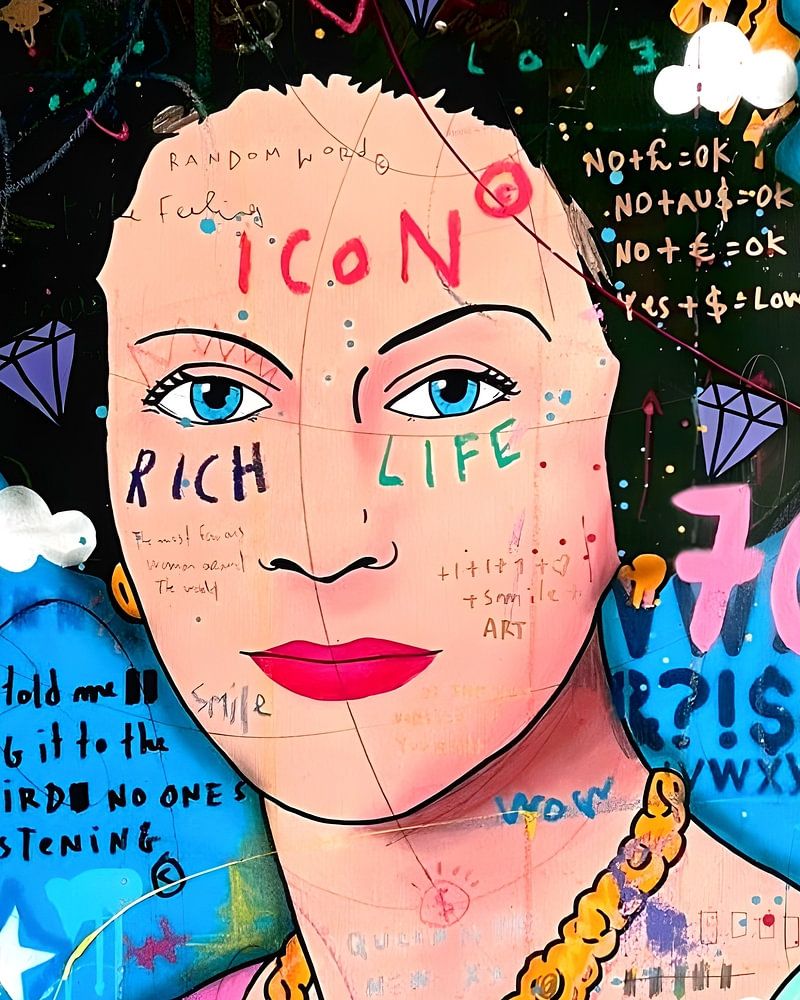 LOVE
RANDOM WORD
Feeling
ICON
NO+£=OK
NO+AU$=OK
NO+€=OK
Yes+$=Low
RICH LIFE
The most famous
woman around
The world
+1+1+1+♡
+smile+
ART
70
R?!$
VWXY
Smile
told me
G it to the
IRD NO ONES
STENING
©
WOW
$